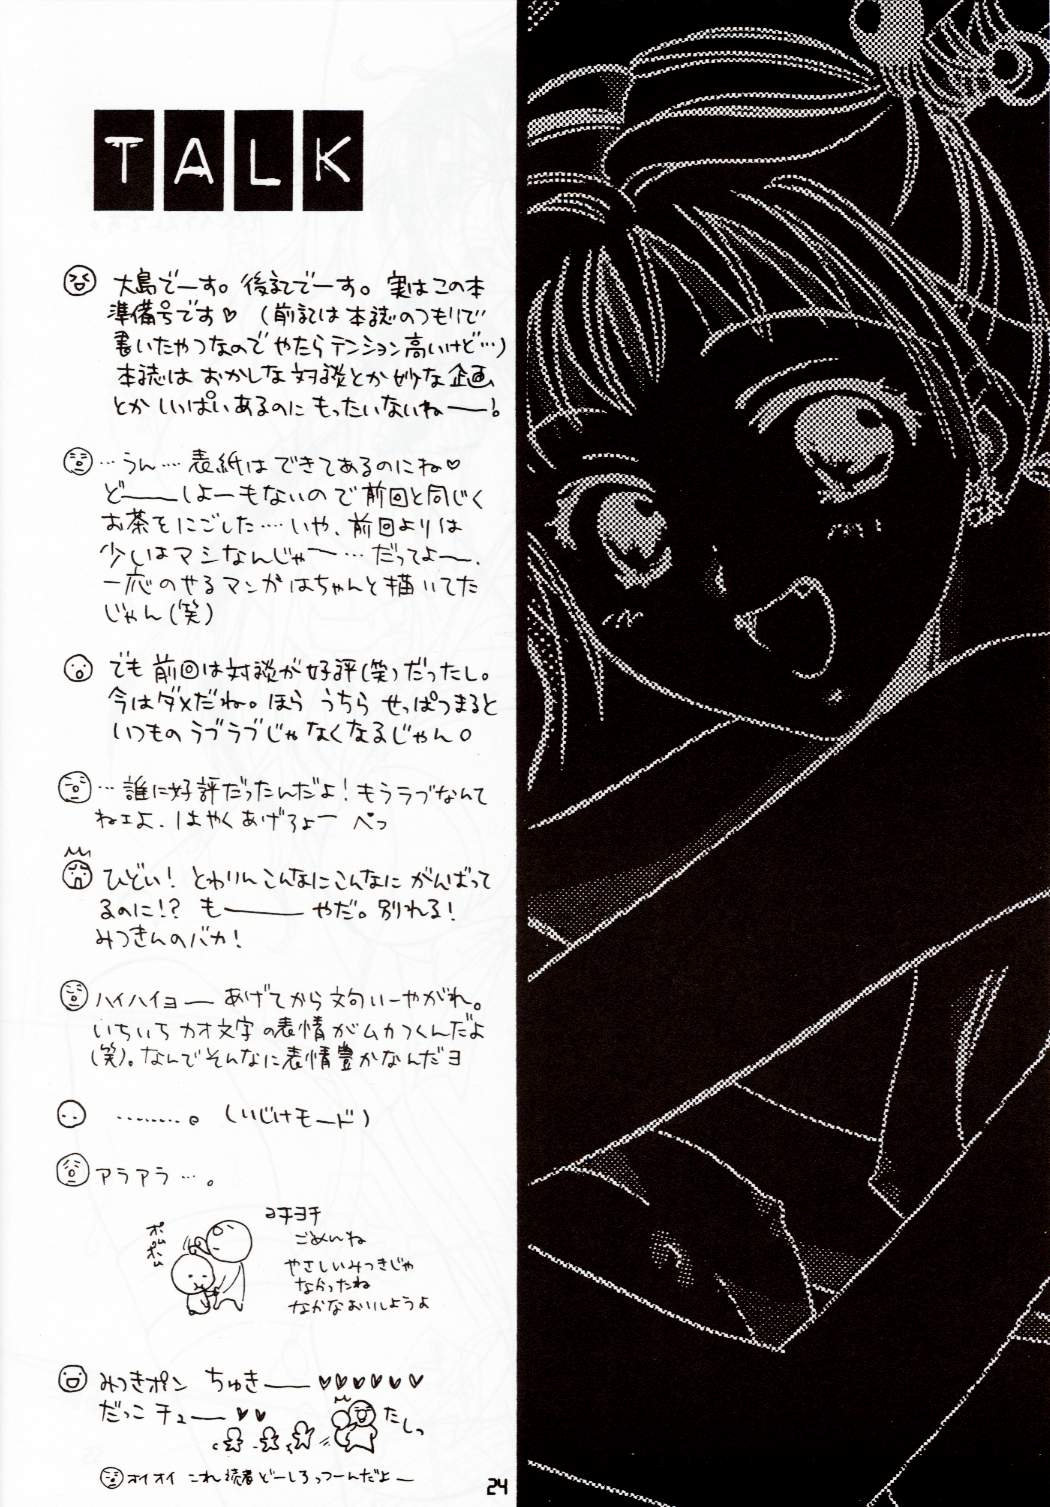 TALK
大島でーす。後記でーす。実はこの本
準備号です♡ (前記は本誌のつもりで
書いたやつなのでやたらテンション高いけど…)
本誌は おかしな対談とか妙な企画
とかいっぱいあるのに もったいないねー!。
…うん…表紙はできてあるのにね♡
ど――しよーもないので前回と同じく
お茶をにごした……いや、前回よりは
少しはマシなんじゃー…だってよ〜、
一応のせるマンガはちゃんと描いてた
じゃん(笑)
でも前回は対談が好評(笑)だったし。
今はダメだね。ほら うちら せっぱつまると
いつものラブラブじゃなくなるじゃん。
…誰に好評だったんだよ!もうラブなんて
ねェよ、はやくあげろよー ぺっ
ひどい! とわりんこんなにこんなに がんばって
るのに!? も――――やだ。別れる!
みつきんのバカ!
ハイハイヨー あげてから文句いーやがれ。
いちいちカオ文字の表情がムカつくんだよ
(笑)。なんでそんなに表情豊かなんだヨ
………。(いじけモード)
アラアラ…。
ポムポム
ヨチヨチ
ごめんね
やさしいみつきじゃ
なかったね
なかなおりしようよ
みつきポン ちゅき――♥♥♥♥♥♥
だっこチュ――♥♥
たしっ
オイオイ これ読者どーしろっつーんだよー
24